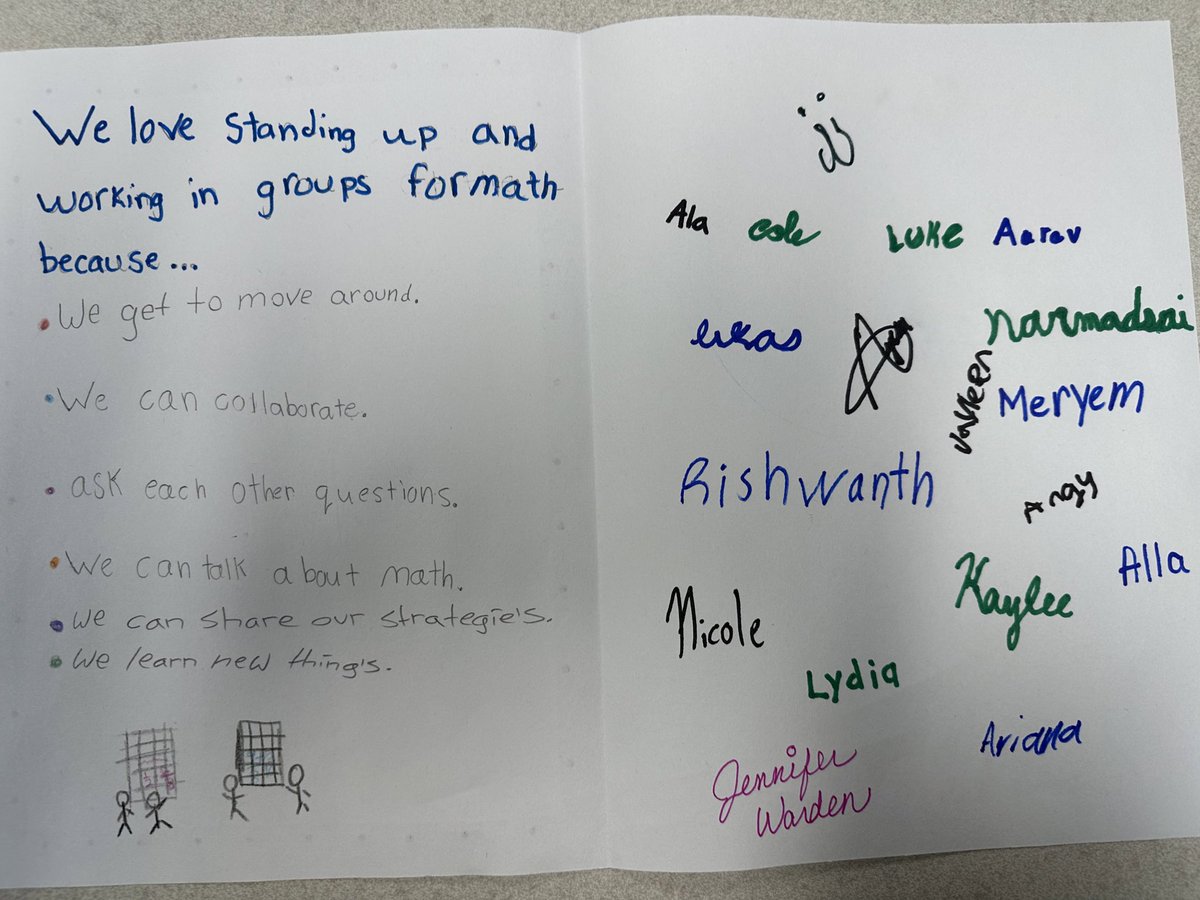 We love standing up and
working in groups for math
because...
• We get to move around.
• We can collaborate.
• ask each other questions.
• We can talk about math.
• we can share our strategie's.
• we learn new thing's.
Ala Cole Luke Aarav
Lukas Narmadsai
Meryem
Rishwanth Angy
Alla
Kaylee
Nicole
Lydia
Ariana
Jennifer
Warden